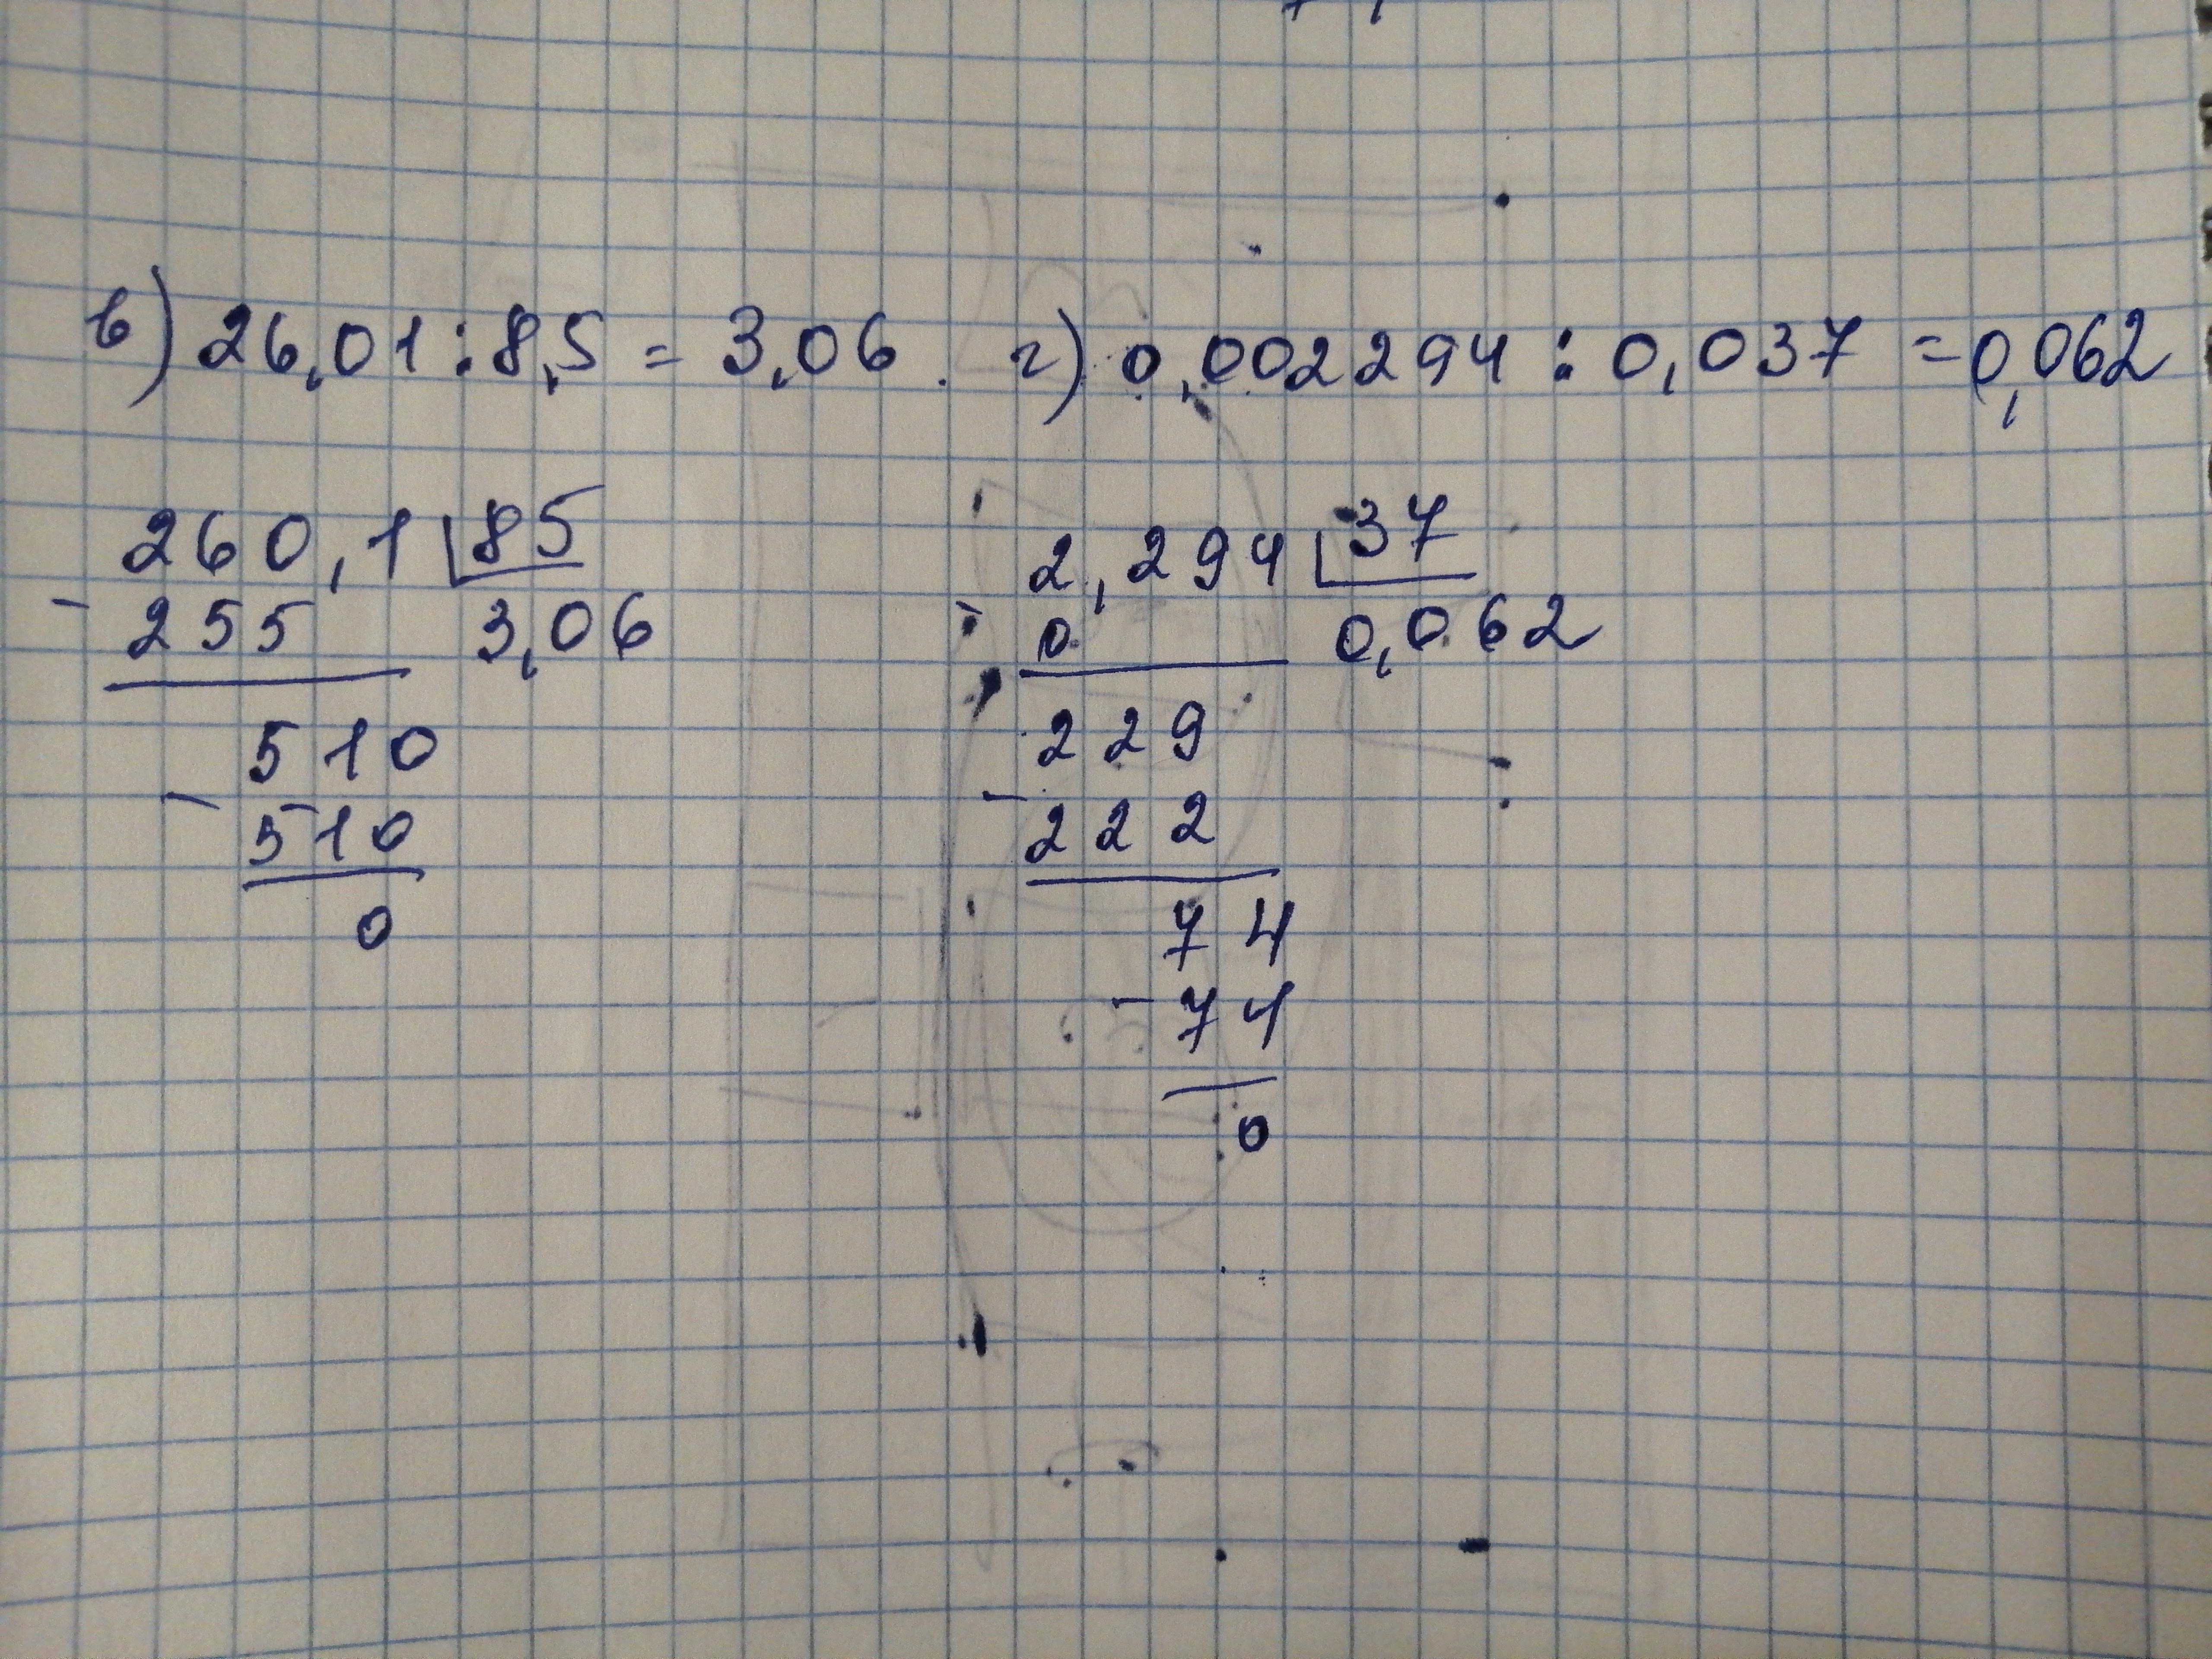 в) 26,01 : 8,5 = 3,06. г) 0,002294 : 0,037 = 0,062
260,1 85
- 255 3,06
510
- 510
0
2,294 37
- 0 0,062
229
- 222
74
- 74
0